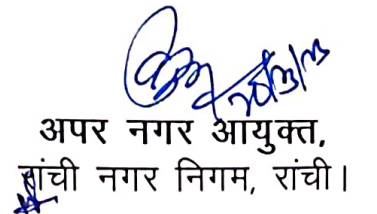 अपर नगर आयुक्त,
रांची नगर निगम, रांची।